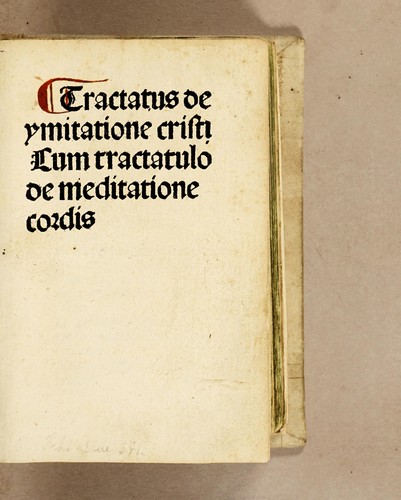 Tractatus de
ymitatione cristi
Cum tractatulo
de meditatione
cordis